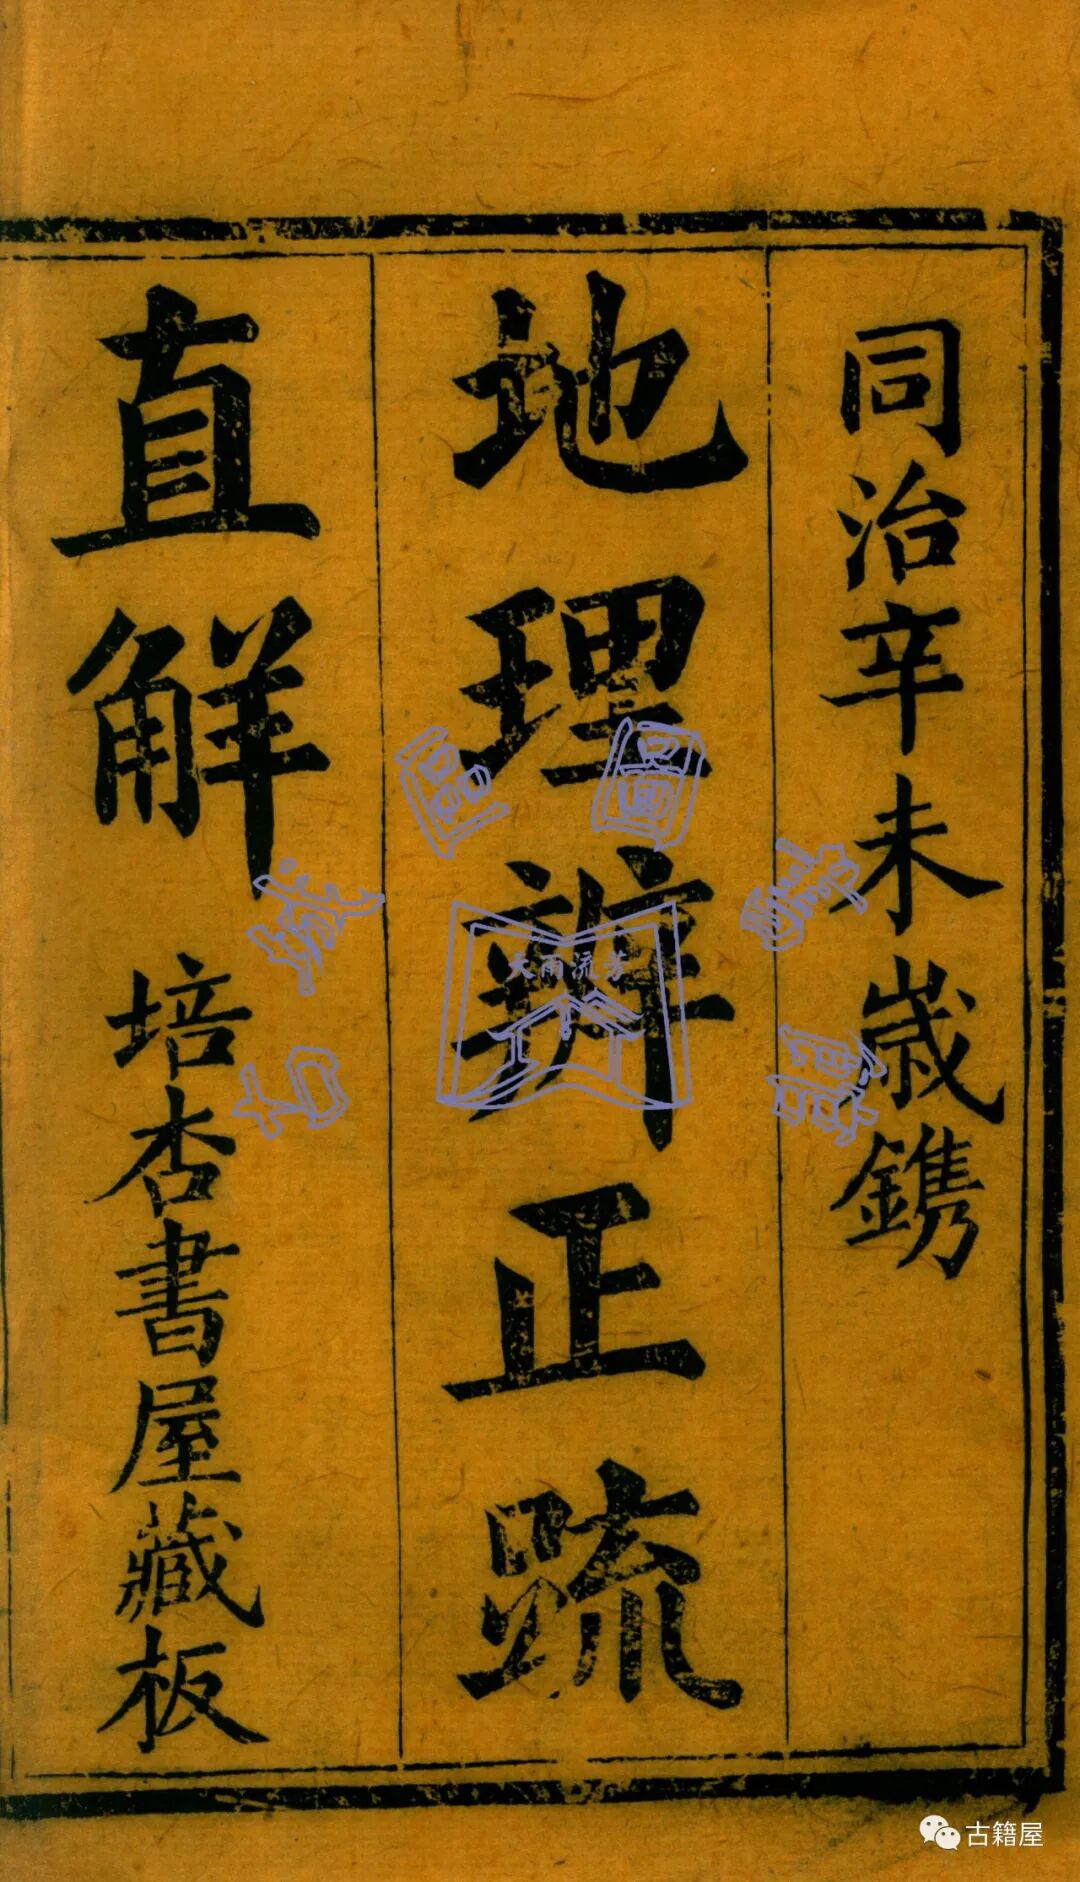 同治辛未歲鐫
地理辨正疏
直解
培杏書屋藏板
天雨流芳
古城區圖書館
古籍屋